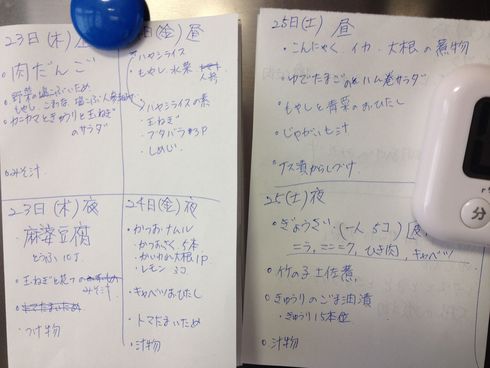 23日(木)
肉だんご
もやし
カニカマときゅうりと玉ねぎ
のサラダ
みそ汁
日(金) 昼
ハヤシライス
もやし 水菜
人参
ハヤシライスの素
・玉ねぎ
・しめじ
23日(木)夜
麻婆豆腐
とうふ 10丁
みそ汁
つけ物
24日(金)夜
・かつお・ナムル
・かつおたたく 5本
・かいわれ大根 1P
・レモン 3コ
・キャベツおひたし
・トマたまいため
・汁物
25日(土) 昼
・こんにゃく イカ、大根の煮物
ゆでたまごのハム巻サラダ
もやしと青菜のおひたし
じゃがいも汁
25(土)夜
・ぎょうざ (一人 5コ)
ニラ、ニンニク、ひき肉、キャベツ
・竹の子土佐煮
・きゅうりのごま油漬
・きゅうり 15本位
・汁物
分